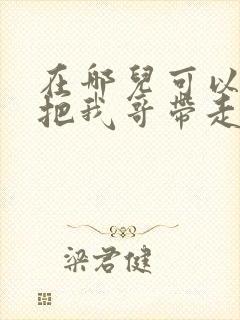 在那兒可以
把我哥帶走
梁君健